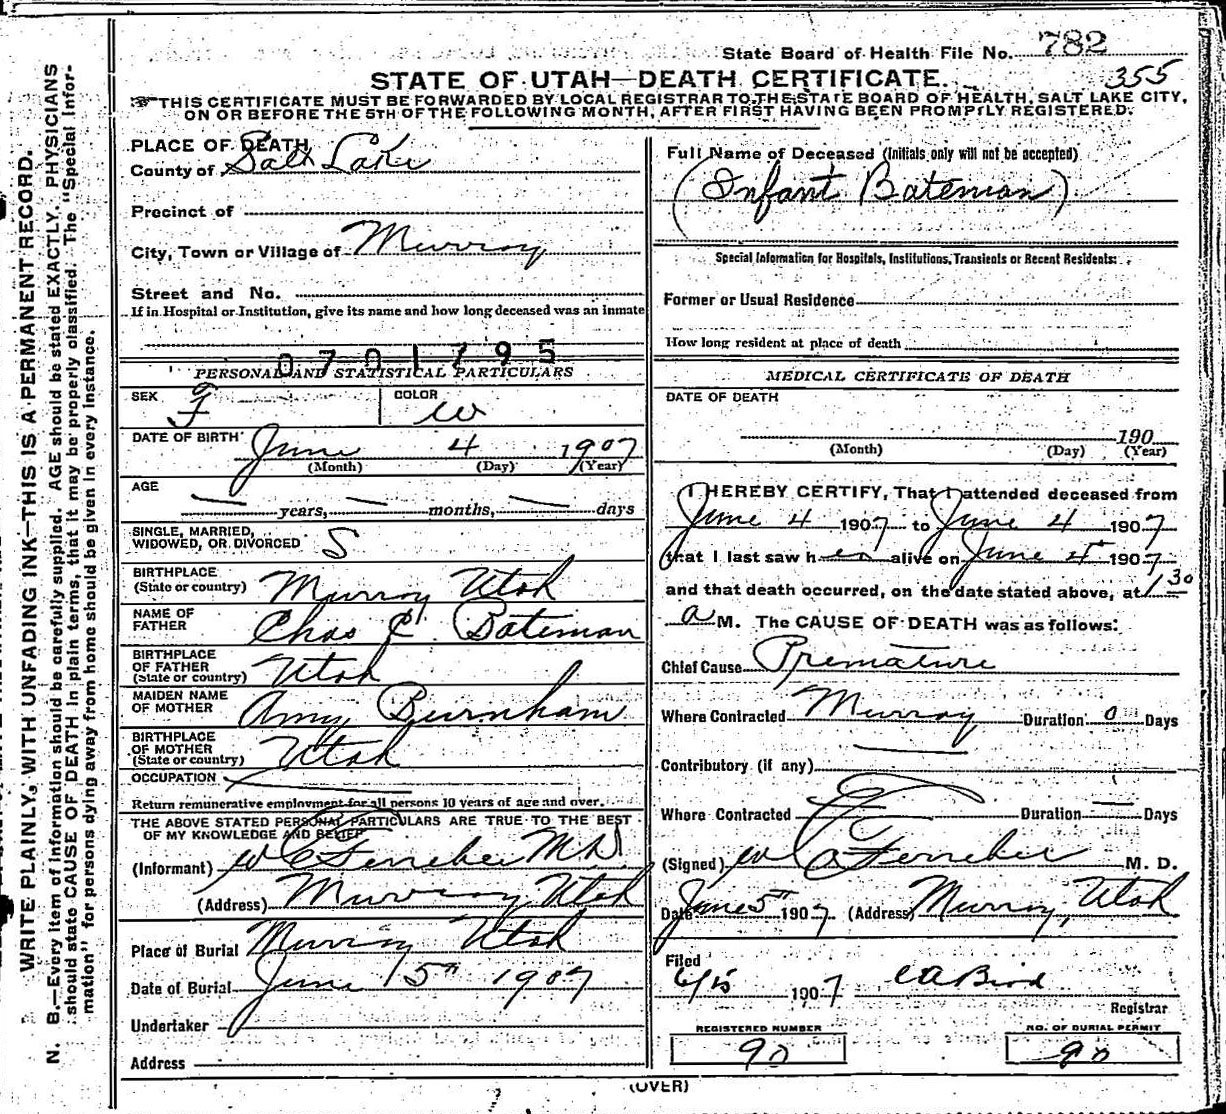 State Board of Health File No. 782
STATE OF UTAH—DEATH CERTIFICATE. 355
THIS CERTIFICATE MUST BE FORWARDED BY LOCAL REGISTRAR TO THE STATE BOARD OF HEALTH, SALT LAKE CITY,
ON OR BEFORE THE 5TH OF THE FOLLOWING MONTH, AFTER FIRST HAVING BEEN PROMPTLY REGISTERED.
WRITE PLAINLY, WITH UNFADING INK—THIS IS A PERMANENT RECORD.
N. B.—Every item of information should be carefully supplied. AGE should be stated EXACTLY. PHYSICIANS
should state CAUSE OF DEATH in plain terms, that it may be properly classified. The "Special Infor-
mation" for persons dying away from home should be given in every instance.
PLACE OF DEATH
County of Salt Lake
Precinct of
City, Town or Village of Murray
Street and No.
If in Hospital or Institution, give its name and how long deceased was an inmate
0701795
PERSONAL AND STATISTICAL PARTICULARS
SEX F COLOR W
DATE OF BIRTH June 4 1907
(Month) (Day) (Year)
AGE
— years, — months, — days
SINGLE, MARRIED,
WIDOWED, OR DIVORCED S
BIRTHPLACE
(State or country) Murray Utah
NAME OF
FATHER Chas C. Bateman
BIRTHPLACE
OF FATHER
(State or country) Utah
MAIDEN NAME
OF MOTHER Amy Burnham
BIRTHPLACE
OF MOTHER
(State or country) Utah
OCCUPATION
Return remunerative employment for all persons 10 years of age and over.
THE ABOVE STATED PERSONAL PARTICULARS ARE TRUE TO THE BEST
OF MY KNOWLEDGE AND BELIEF
(Informant) Ferrebee MD
(Address) Murray Utah
Place of Burial Murray Utah
Date of Burial June 5th 1907
Undertaker
Address
Full Name of Deceased (Initials only will not be accepted)
(Infant Bateman)
Special Information for Hospitals, Institutions, Transients or Recent Residents:
Former or Usual Residence
How long resident at place of death
MEDICAL CERTIFICATE OF DEATH
DATE OF DEATH
190
(Month) (Day) (Year)
I HEREBY CERTIFY, That I attended deceased from
June 4 1907 to June 4 1907
that I last saw her alive on June 4th 1907
and that death occurred, on the date stated above, at 1 30
a M. The CAUSE OF DEATH was as follows:
Chief Cause Premature
Where Contracted Murray Duration 0 Days
Contributory (if any)
Where Contracted Duration — Days
(Signed) Ferrebee M. D.
Date June 5th 1907 (Address) Murray, Utah
Filed
6/5 1907 C A Bird
Registrar
REGISTERED NUMBER
90
NO. OF BURIAL PERMIT
90
(OVER)